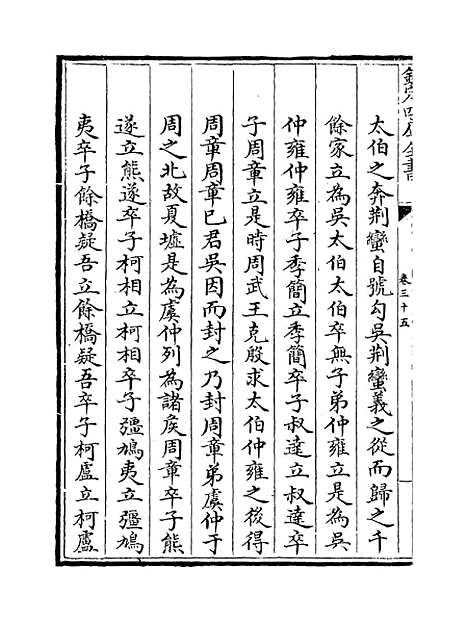 欽定四庫全書
卷三十五
太伯之奔荆蠻自號勾吳荆蠻義之從而歸之千
餘家立為吳太伯太伯卒無子弟仲雍立是為吳
仲雍仲雍卒子季簡立季簡卒子叔達立叔達卒
子周章立是時周武王克殷求太伯仲雍之後得
周章周章已君吳因而封之乃封周章弟虞仲于
周之北故夏墟是為虞仲列為諸侯周章卒子熊
遂立熊遂卒子柯相立柯相卒子彊鳩夷立彊鳩
夷卒子餘橋疑吾立餘橋疑吾卒子柯盧立柯盧